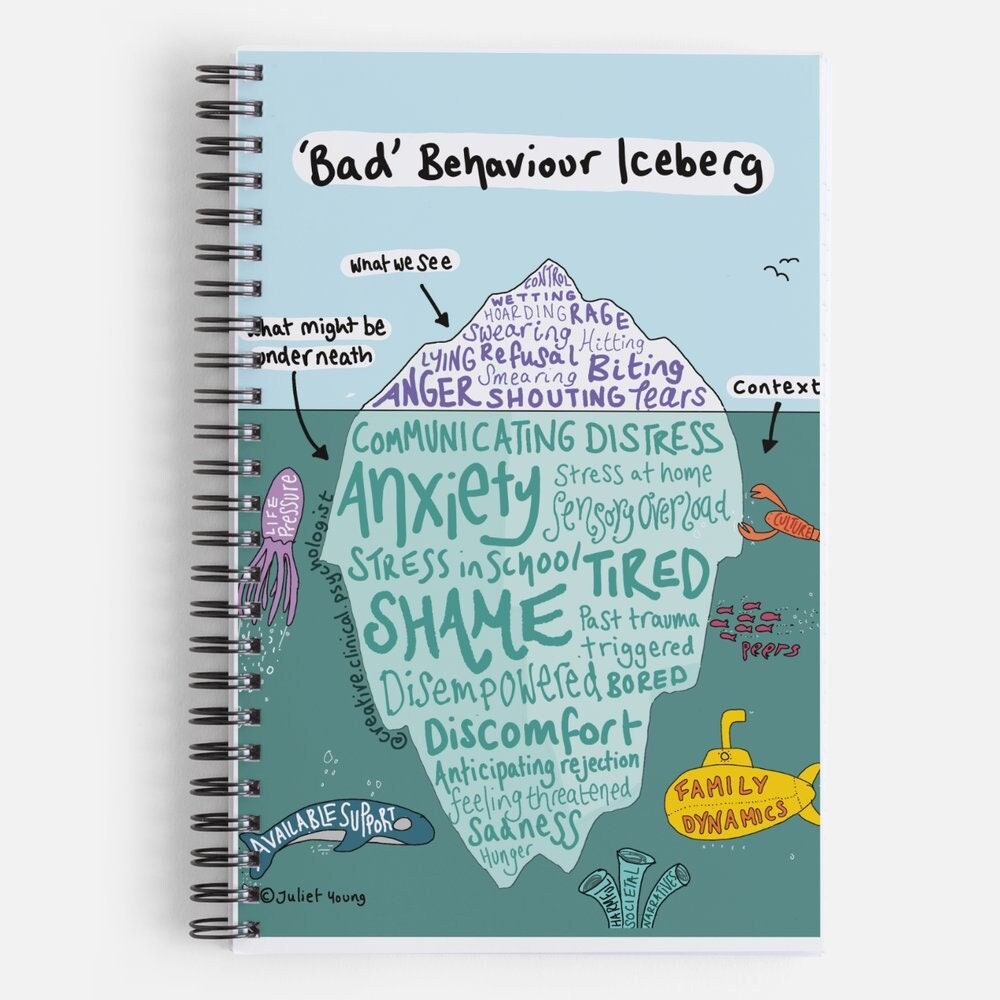 'Bad' Behaviour Iceberg
What we see
What might be
underneath
Context
CONTROL
WETTING
HOARDING RAGE
Swearing Hitting
LYING Refusal Biting
Smearing
ANGER SHOUTING Tears
COMMUNICATING DISTRESS
Anxiety Stress at home
Sensory Overload
STRESS in School TIRED
SHAME Past trauma
triggered
Disempowered BORED
Discomfort
Anticipating rejection
feeling threatened
Sadness
Hunger
LIFE
Pressure
@creative.clinical.psychologist
CULTURE
peers
FAMILY
DYNAMICS
AVAILABLE SUPPORT
HARMFUL
SOCIETAL
NARRATIVES
© Juliet Young